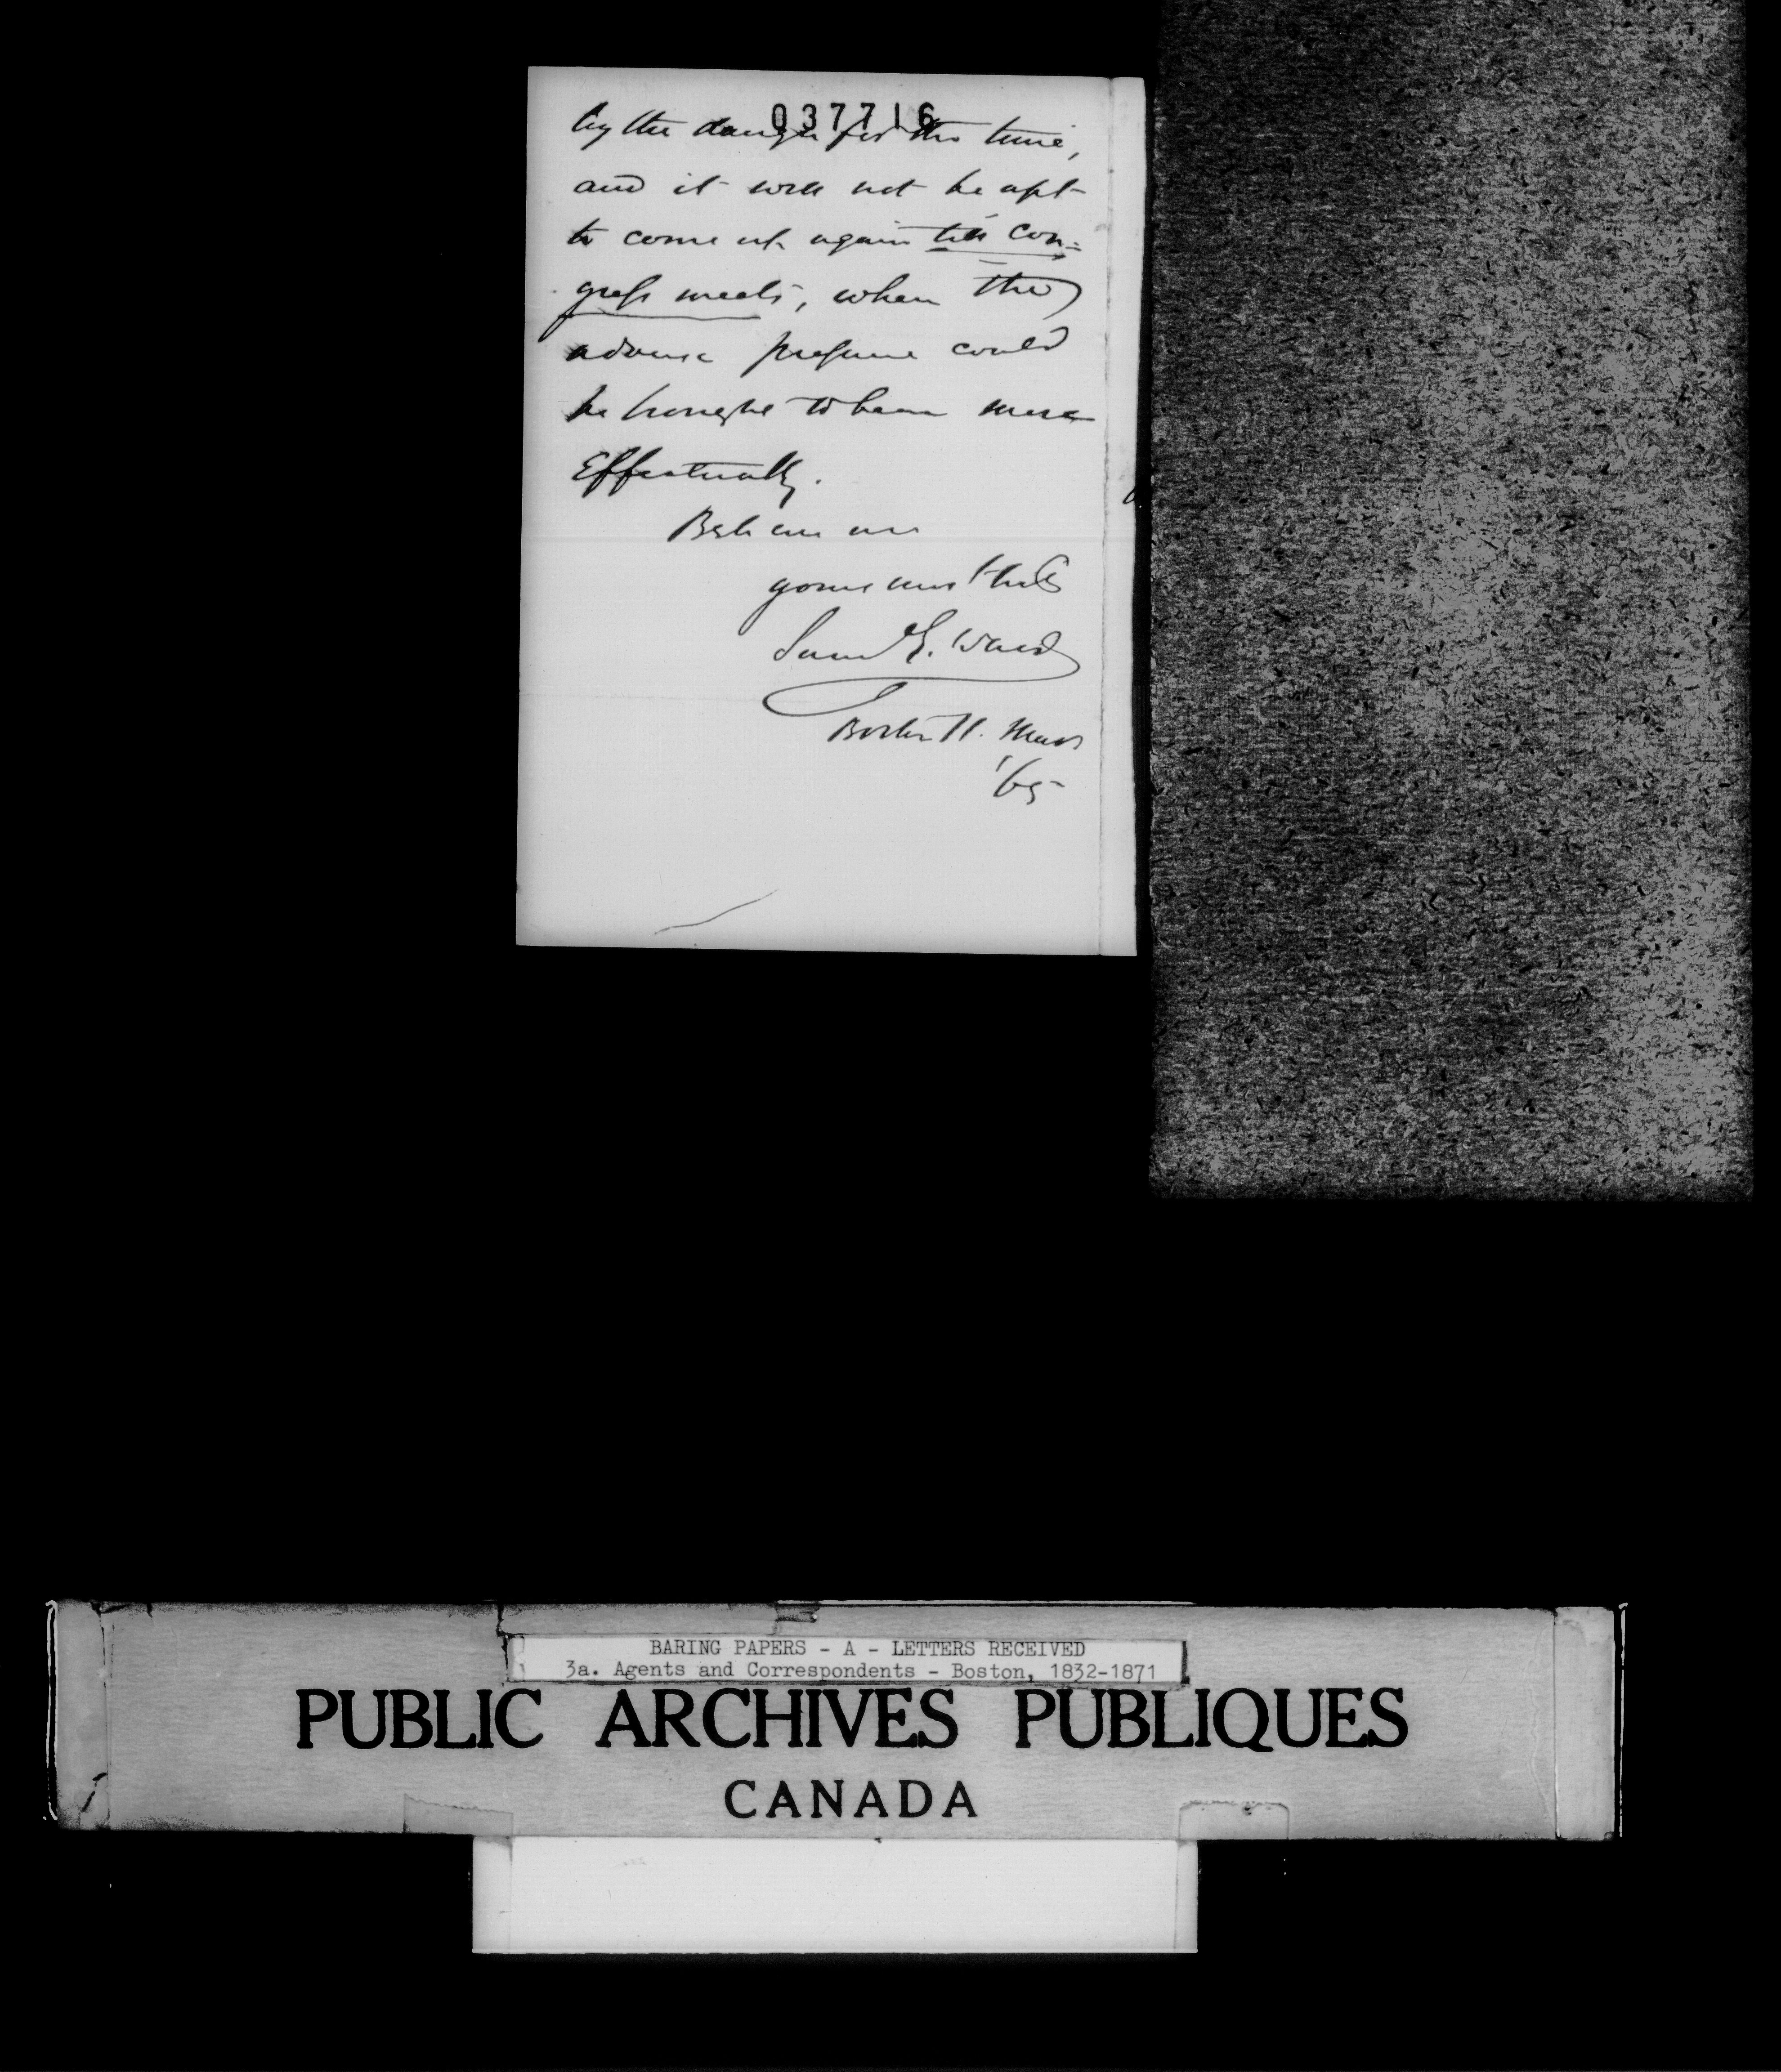 037716
by the danger for the time,
and it will not be apt
to come up again till Con=
gress meets, when the
adverse pressure could
be brought to bear more
Effectually.
Believe me
yours most truly
Saml G. Ward
Boston 11. March
'65
BARING PAPERS - A - LETTERS RECEIVED
3a. Agents and Correspondents - Boston, 1832-1871
PUBLIC ARCHIVES PUBLIQUES
CANADA